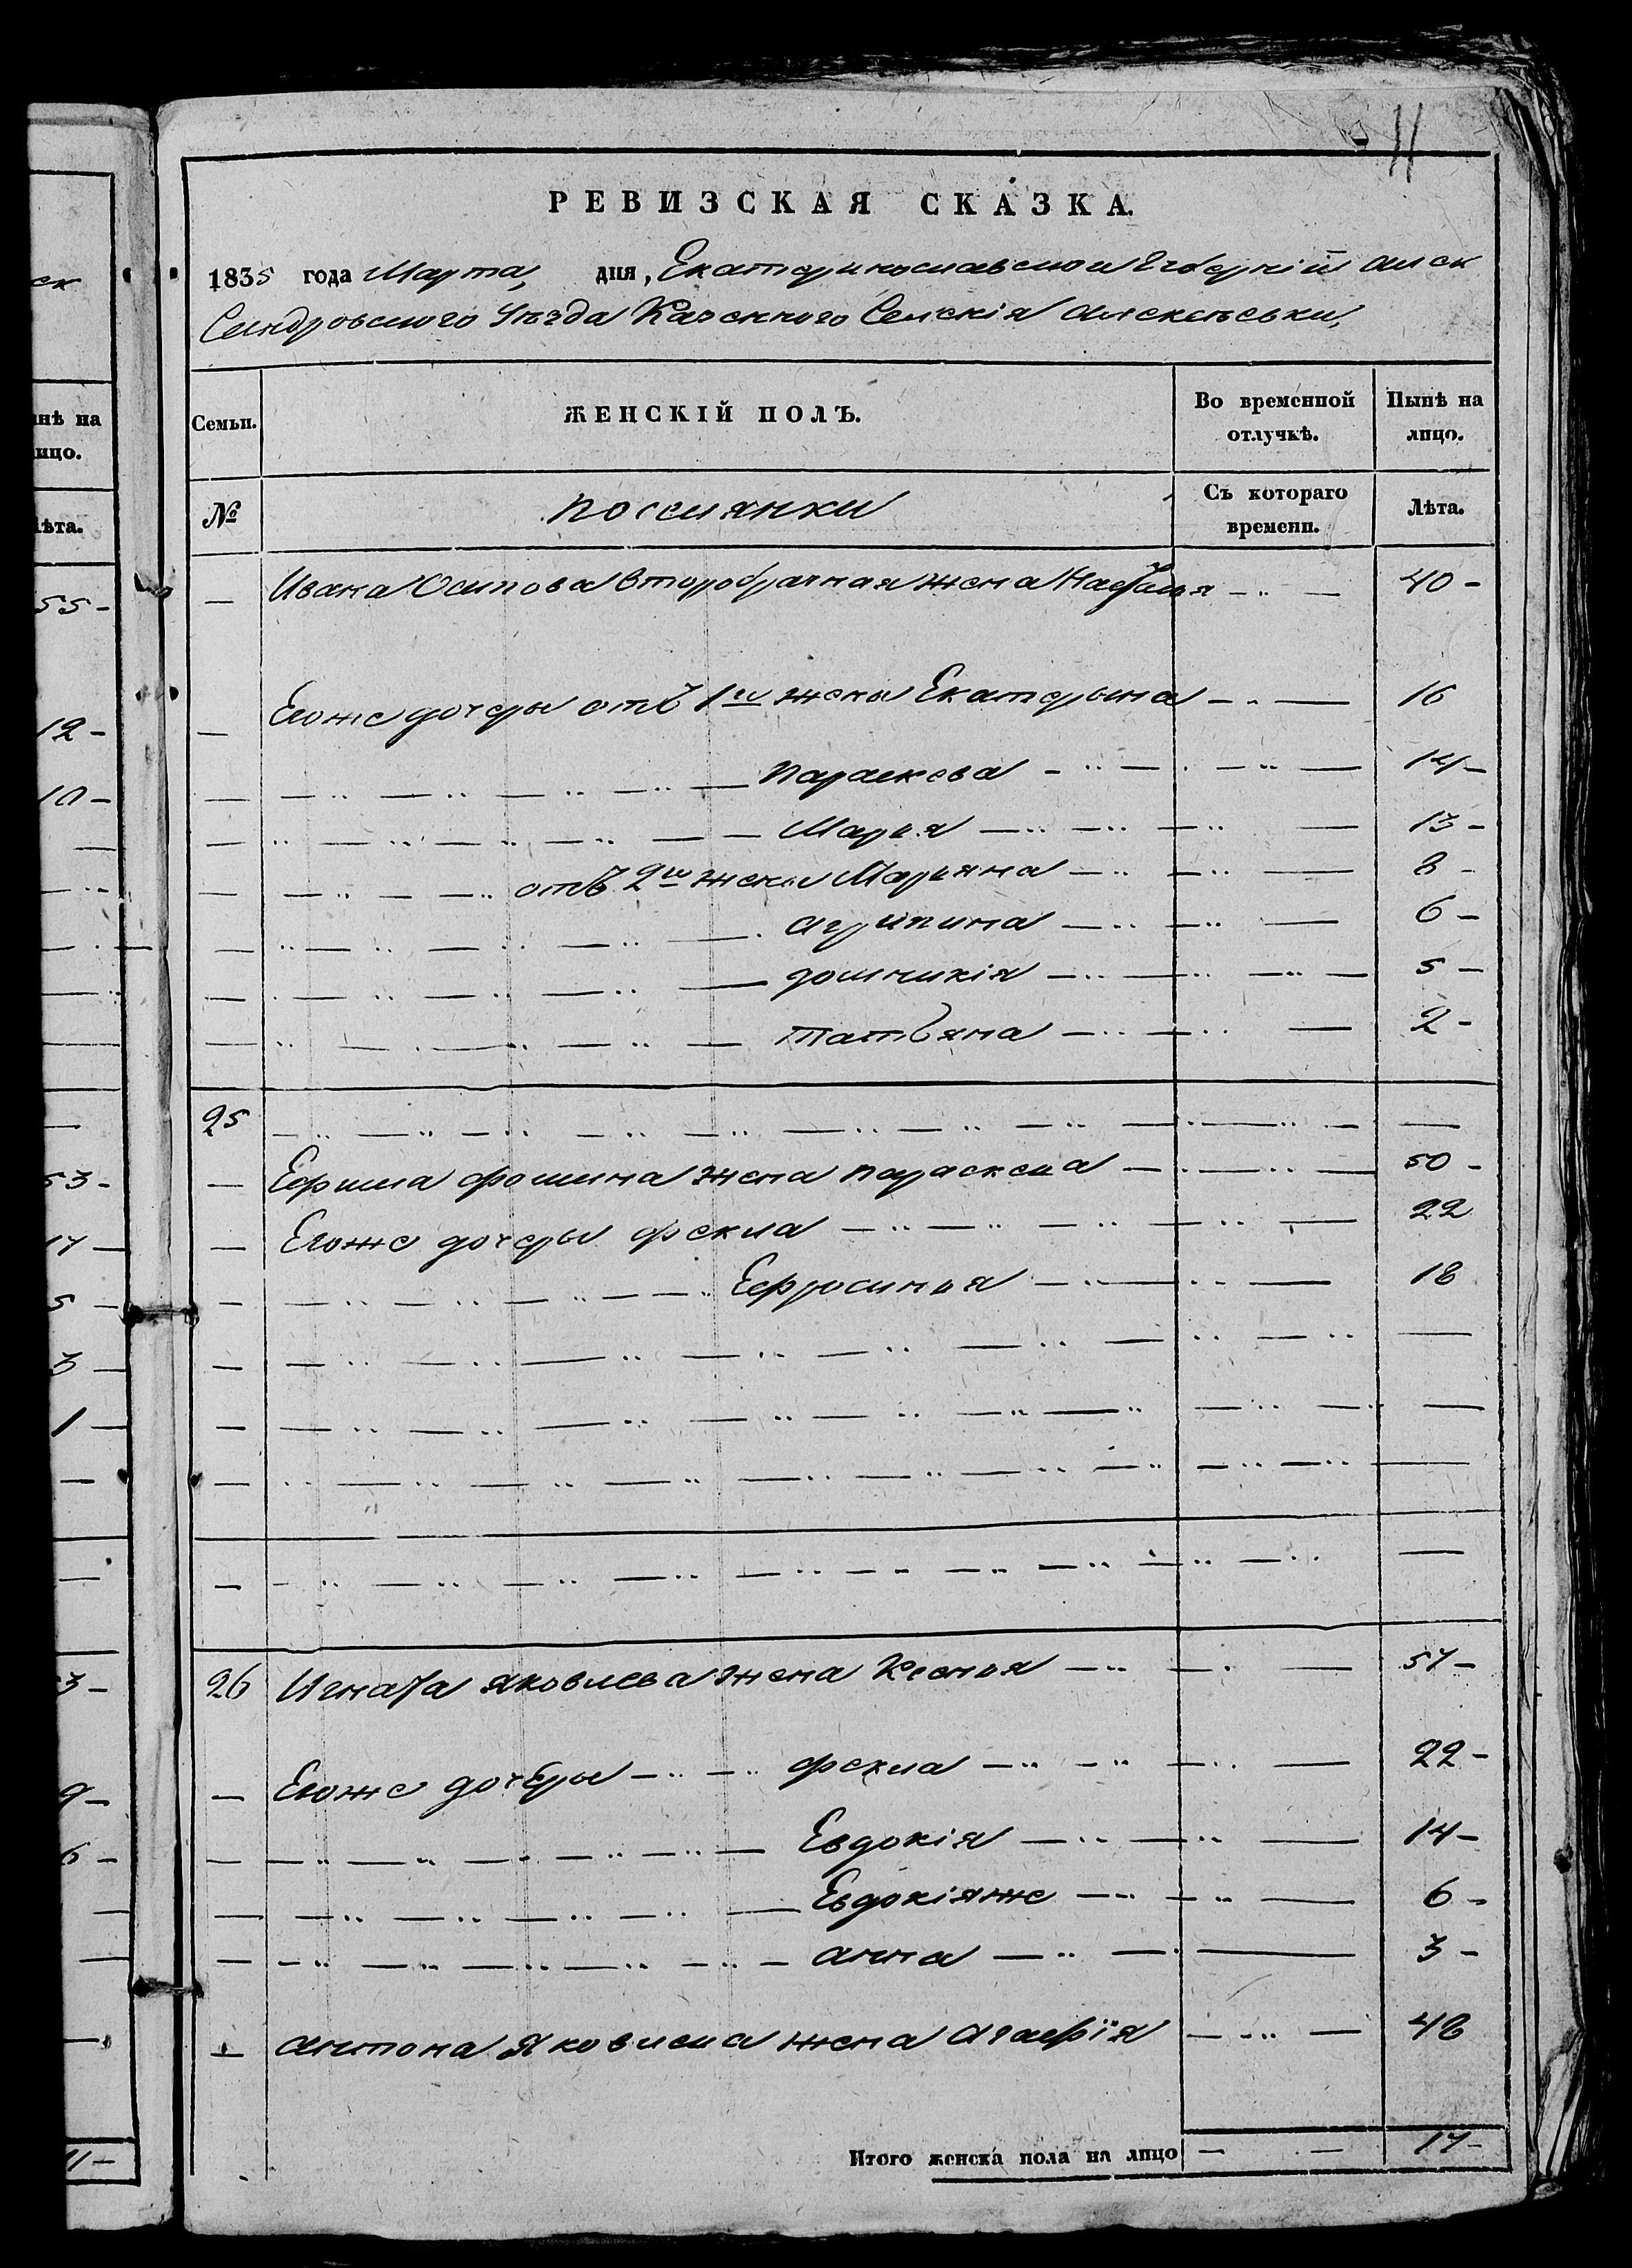 11
РЕВИЗСКАЯ СКАЗКА.
1835 года Марта, дня, Екатеринославской Губернїи алек
Сандровского Уѣзда Казенного Селенїя алексѣевки,
Семьи. ЖЕНСКІЙ ПОЛЪ. Во временной отлучкѣ. Нынѣ на лицо.
№ поселянки Съ котораго времени. Лѣта.
— Ивана Осипова второбрачная жена Насталья — 40 -
— Егоже дочеры отъ 1й жены Екатерына — 16
— Параскева — 14 -
— Марья — 13 -
— отъ 2й жены Марьяна — 8 -
— агрипина — 6 -
— домникія — 5 -
— татьяна — 2 -
25
— Ефима фомина жена параскева — 50 -
— Егоже дочеры фекла — 22
— Ефросинья — 18
26 Игната яковлева жена Ксенья — 57 -
— Егоже дочеры — фекла — 22 -
— Евдокія — 14 -
— Евдокіяже — 6 -
— анна — 3 -
— антона Яковлева жена Агафїя — 48
Итого женска пола на лицо — 17 -
ск
ынѣ на
лицо.
Лѣта.
55 -
12 -
10 -
53 -
17 —
5 —
3 —
1 —
3 -
9 -
6 -
11 -